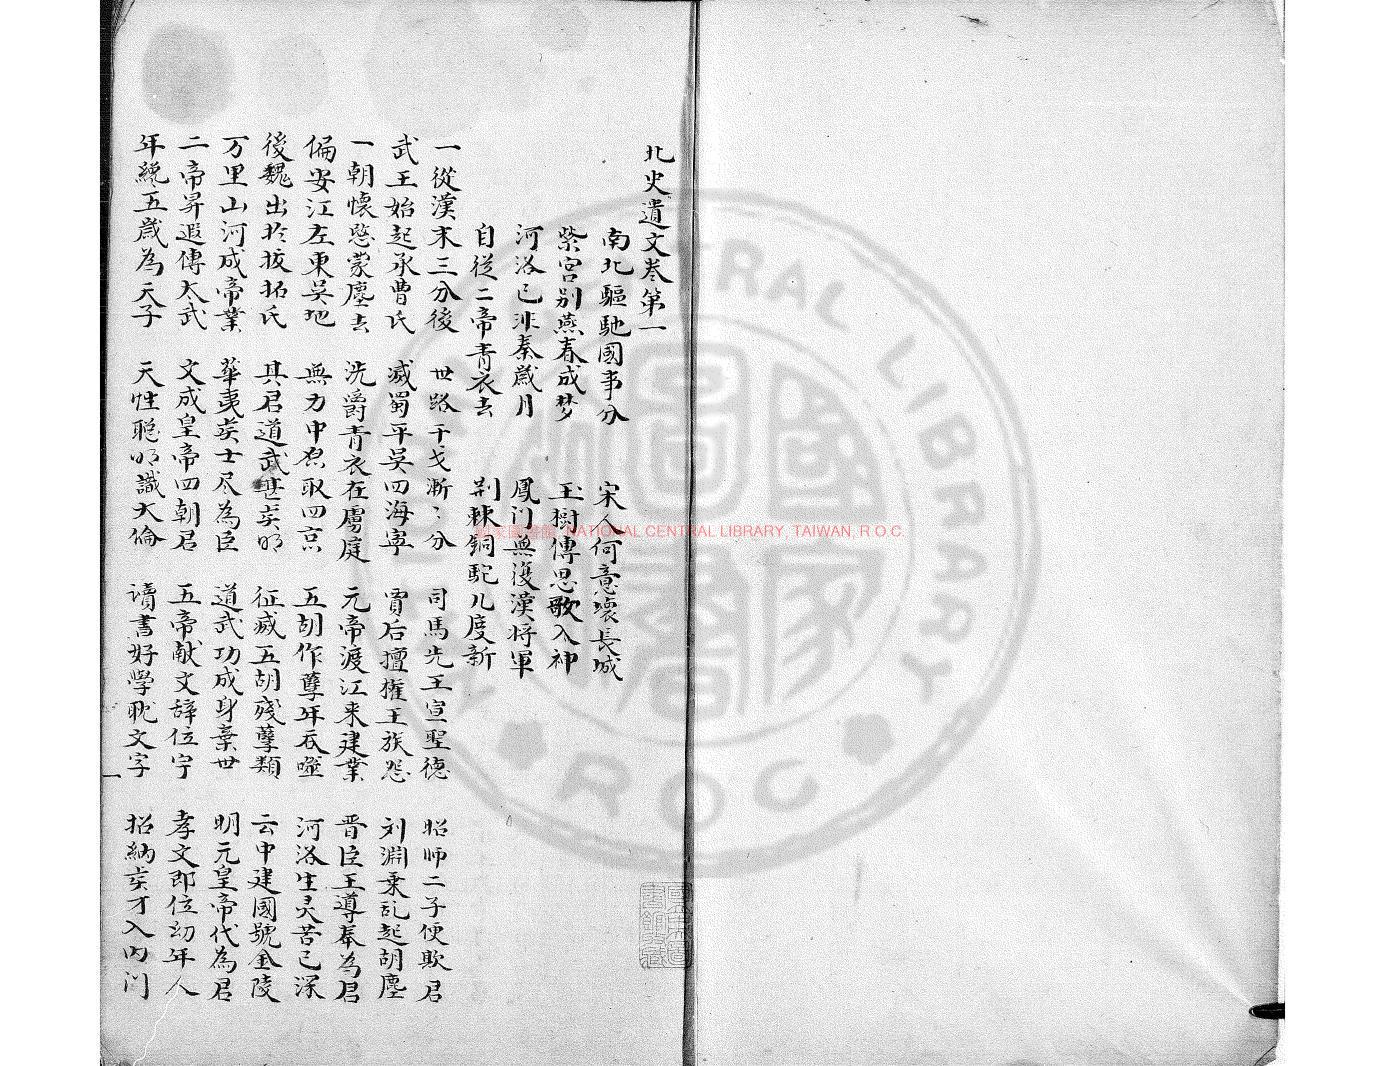 北史遺文卷第一
南北驅馳國事分　宋人何意壞長城
紫宮別燕春成梦　玉樹傳思歌入神
河洛已非秦歲月　鳳门無復漢将軍
自從二帝青衣去　荆棘銅駝几度新
一從漢末三分後　世路干戈漸〻分　司馬先王宣聖德　昭师二子便欺君
武王始起承曹氏　滅蜀平吴四海寧　賈后擅權王族怨　刘淵乗乱起胡塵
一朝懐愍蒙塵去　洗爵青衣在虜庭　元帝渡江来建業　晋臣王導奉為君
偏安江左東吴地　無力中原取四京　五胡作孽年吞噬　河洛生灵苦已深
後魏出於拔拓氏　其君道武甚英明　征滅五胡殘孽類　云中建國號金陵
万里山河成帝業　華夷英士尽為臣　道武功成身棄世　明元皇帝代為君
二帝昇遐傳太武　文成皇帝四朝君　五帝献文辞位宇　孝文即位幼年人
年纔五歲為天子　天性聪明識大倫　讀書好学耽文字　招納英才入内门
一
NATIONAL CENTRAL LIBRARY, TAIWAN, R.O.C.
國家圖書館
CENTRAL LIBRARY
ROC